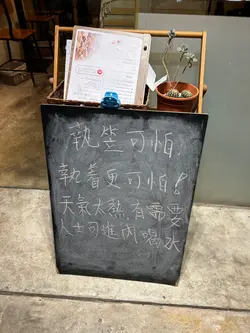 執笠可怕
執着更可怕！
天氣太熱，有需要
人士可進內喝水